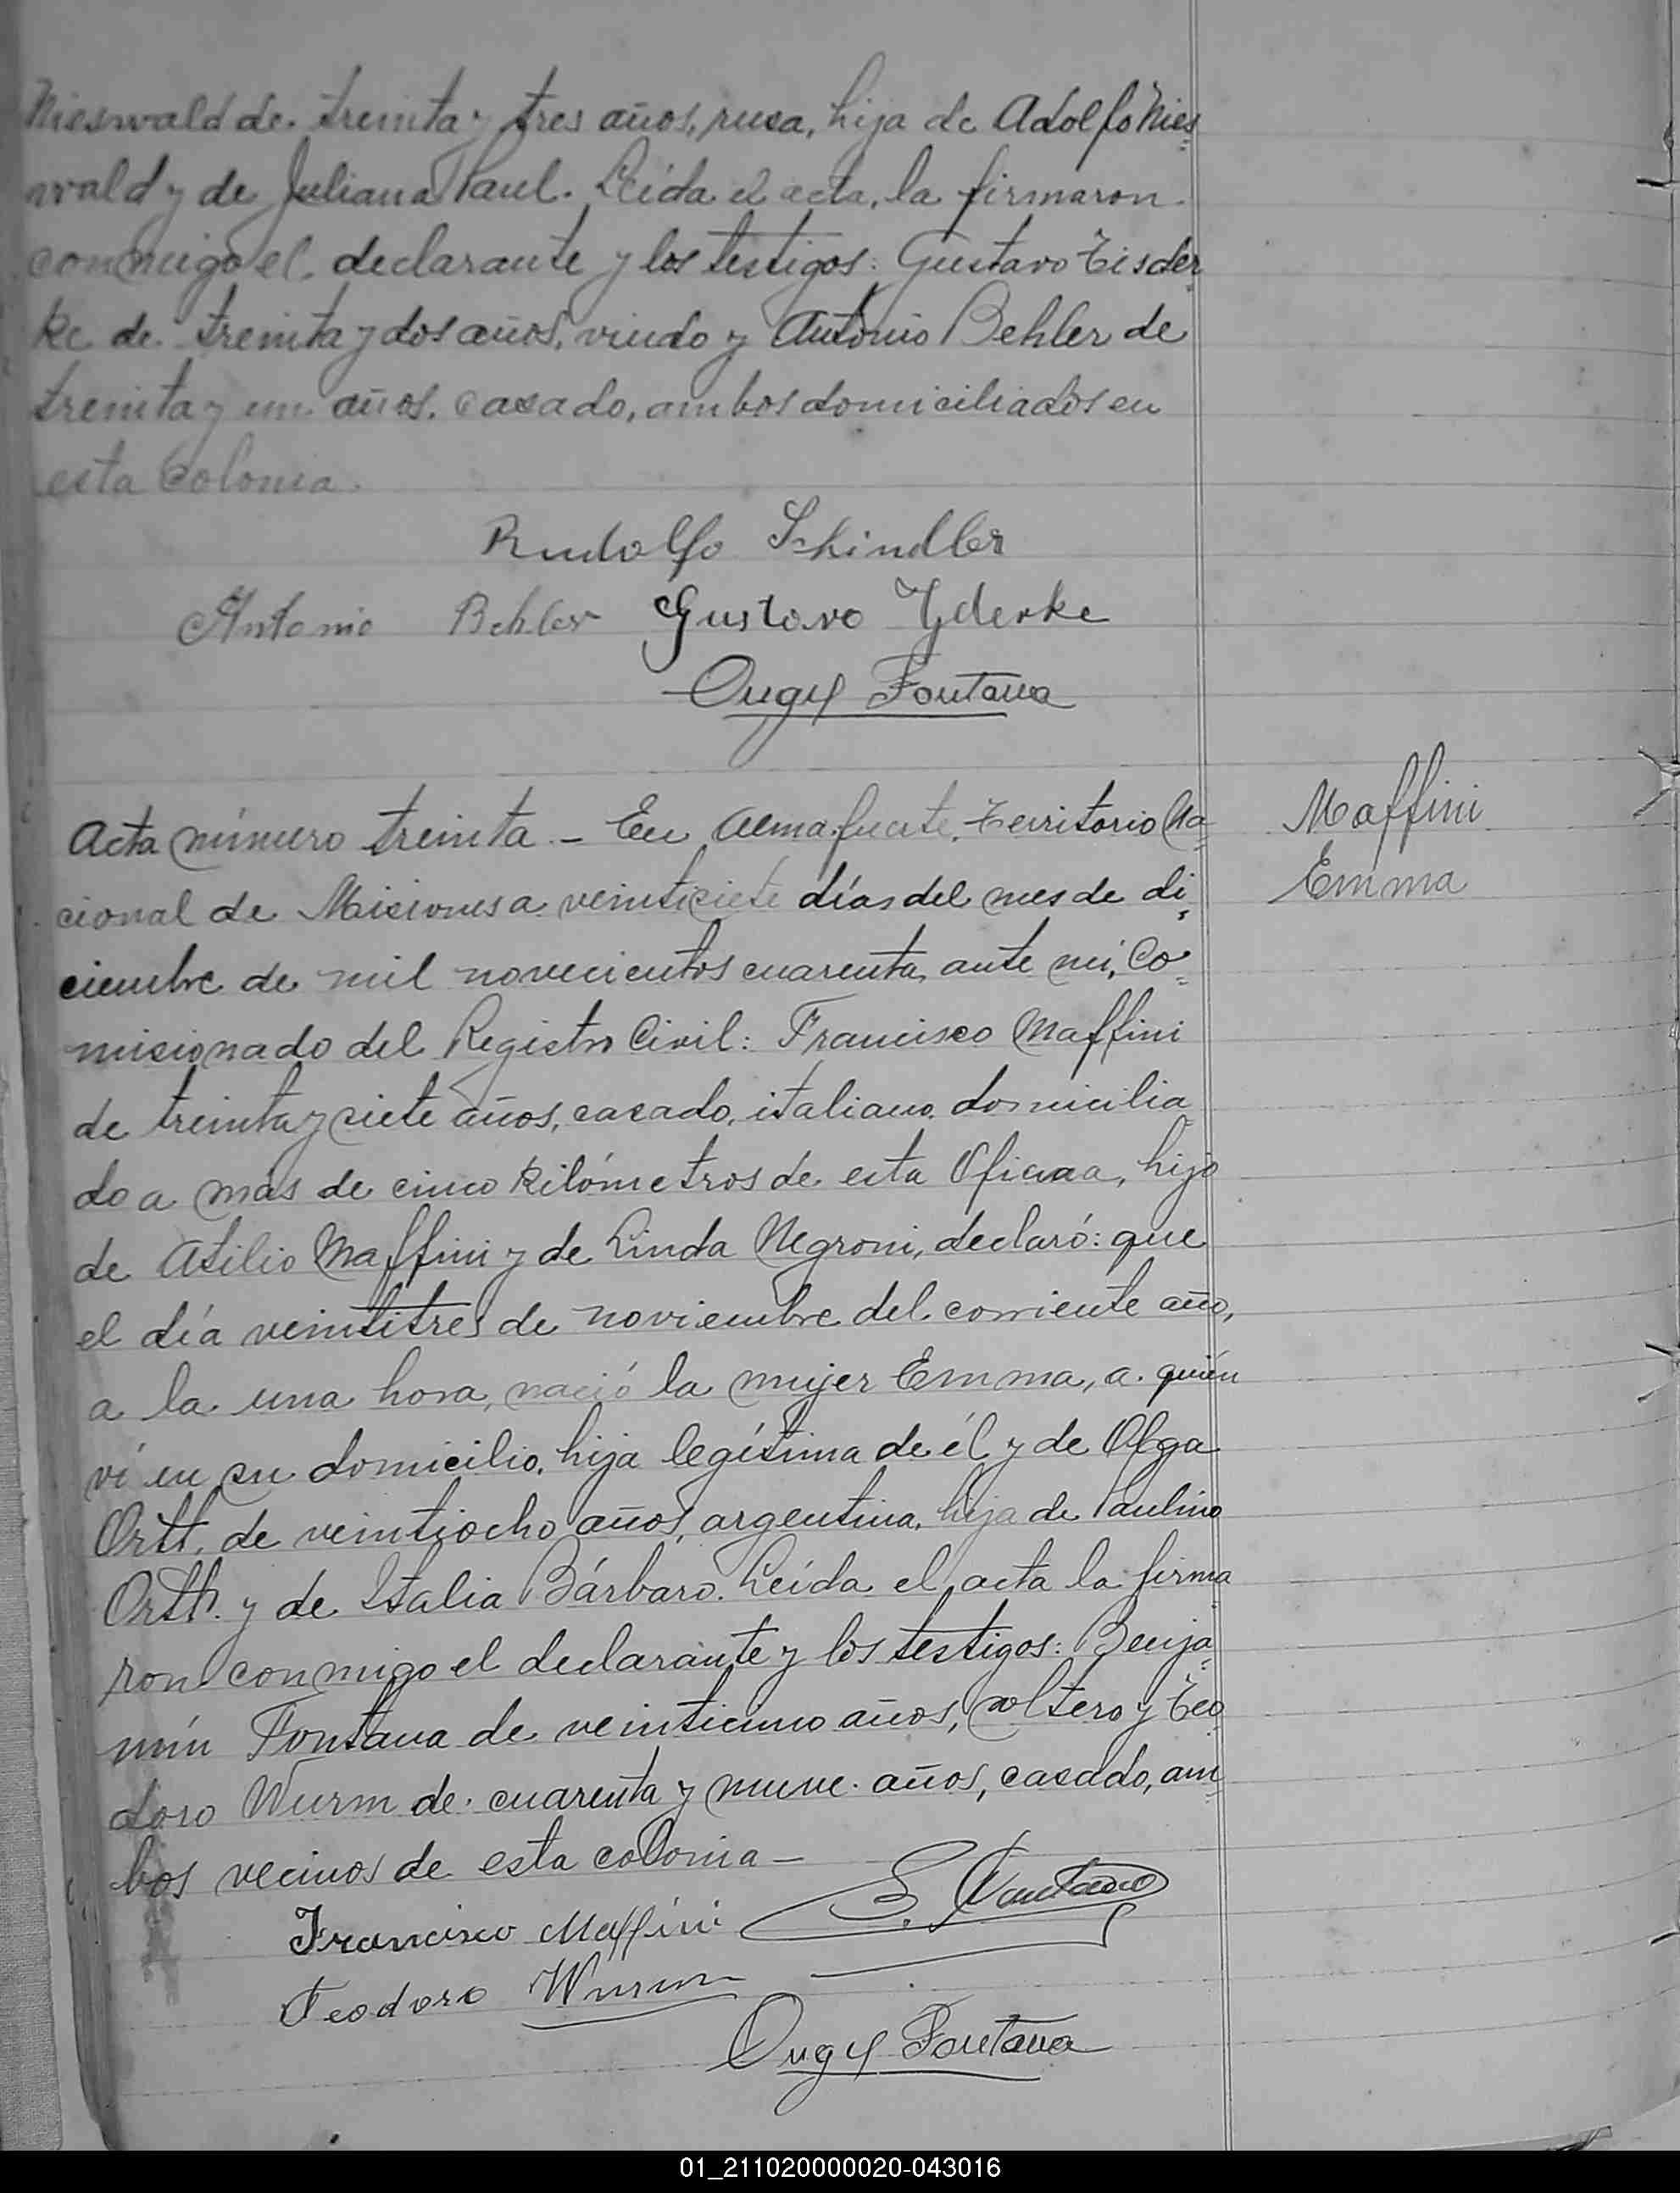 Nieswald de treinta y tres años, rusa, hija de Adolfo Nies
wald y de Juliana Paul. Leída el acta, la firmaron
conmigo el declarante y los testigos: Gustavo Tisder
ke de treinta y dos años, viudo y Antonio Behler de
treinta y un años, casado, ambos domiciliados en
esta Colonia.
Rudolfo Schindler
Antonio Behler Gustavo
Fontana
Acta número treinta - En Alemafuerte, Territorio Na=
cional de Misiones a veintisiete días del mes de di=
ciembre de mil novecientos cuarenta, ante mí, Co=
misionado del Registro Civil: Francisco Maffini
de treinta y siete años, casado, italiano, domicilia
do a más de cinco kilómetros de esta Oficina, hijo
de Atilio Maffini y de Linda Negroni, declaró: que
el día veintitres de noviembre del corriente año,
a la una hora, nació la mujer Emma, a quién
ví en su domicilio, hija legítima de él y de Olga
Ortt, de veintiocho años, argentina, hija de Paulino
Orth. y de Italia Bárbaro. Leída el acta la firma
ron conmigo el declarante y los testigos: Benja=
mín Fontana de veinticinco años, soltero y Teo
doro Wurm de cuarenta y nueve años, casado, am=
bos vecinos de esta colonia -
Francisco Maffini
Teodoro Wurm
Fontana
Maffini
Emma
01_211020000020-043016